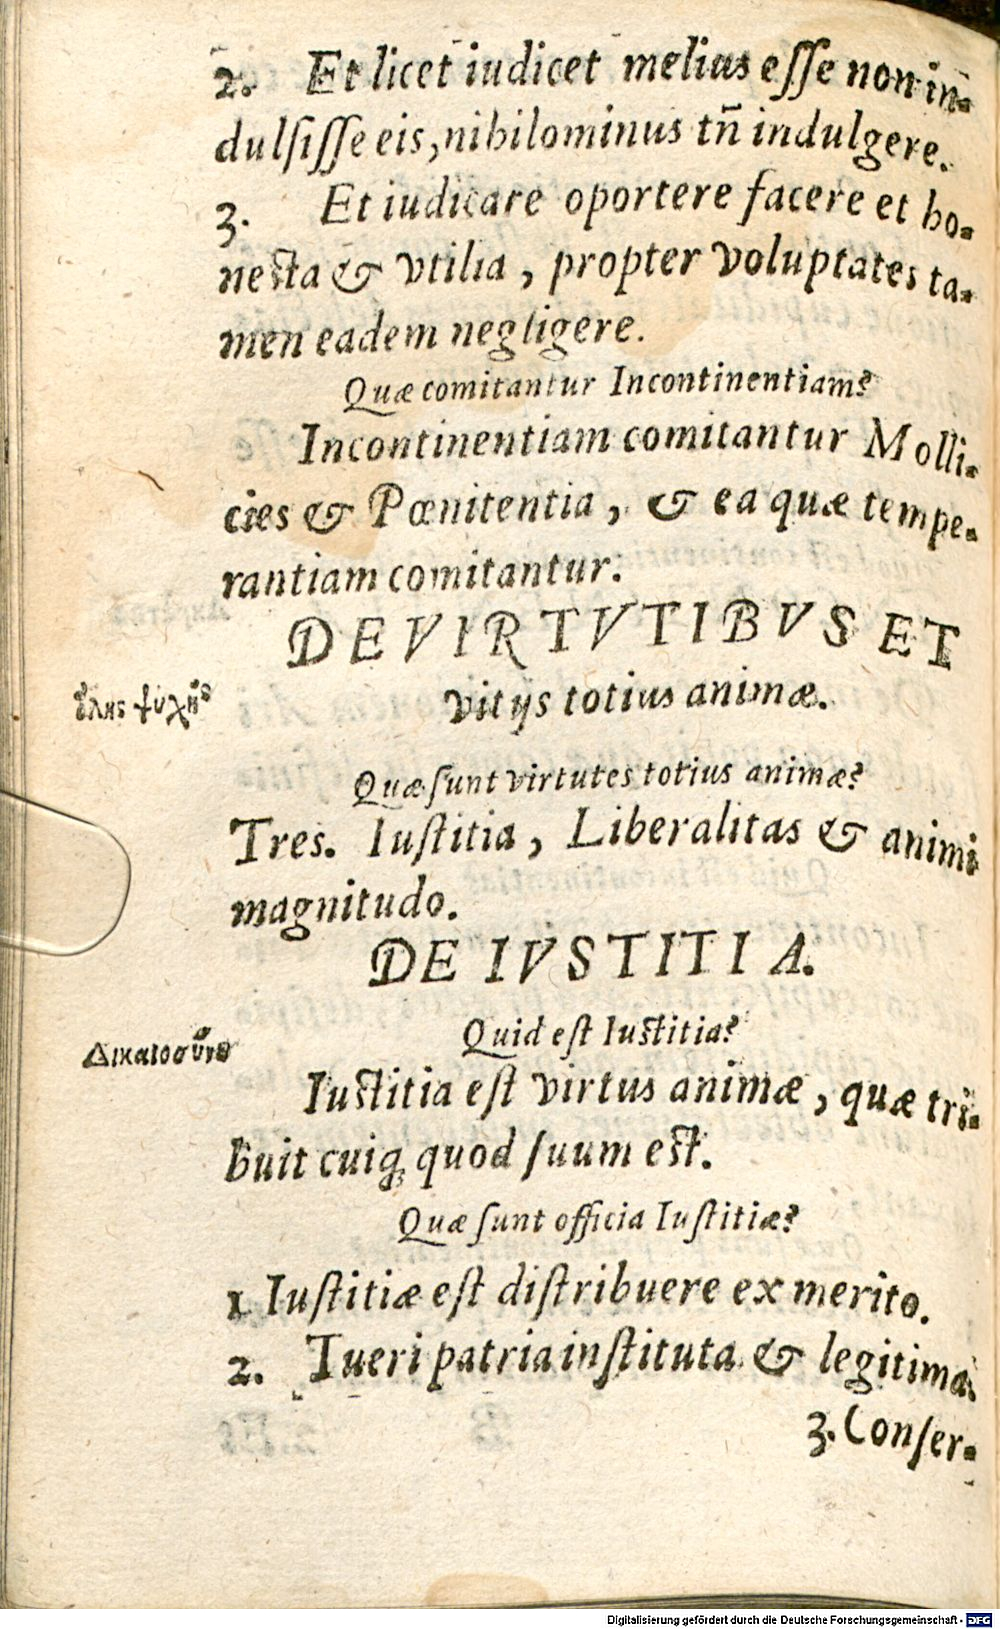 2. Et licet iudicet melius eſſe non in-
dulſiſſe eis, nihilominus tñ indulgere.
3. Et iudicare oportere facere et ho-
neſta & vtilia, propter voluptates ta-
men eadem negligere.
Quæ comitantur Incontinentiam?
Incontinentiam comitantur Molli-
cies & Pœnitentia, & ea quæ tempe-
rantiam comitantur.
DE VIRTVTIBVS ET
ὅλης ψυχῆς
vitijs totius animæ.
Quæ ſunt virtutes totius animæ?
Tres. Iuſtitia, Liberalitas & animi
magnitudo.
DE IVSTITIA.
Quid eſt Iuſtitia?
Δικαιοσύνη
Iuſtitia eſt virtus animæ, quæ tri-
buit cuiq; quod ſuum eſt.
Quæ ſunt officia Iuſtitiæ?
1 Iuſtitiæ eſt diſtribuere ex merito.
2. Tueri patria inſtituta & legitima.
3. Conſer-
Digitalisierung gefördert durch die Deutsche Forschungsgemeinschaft - DFG